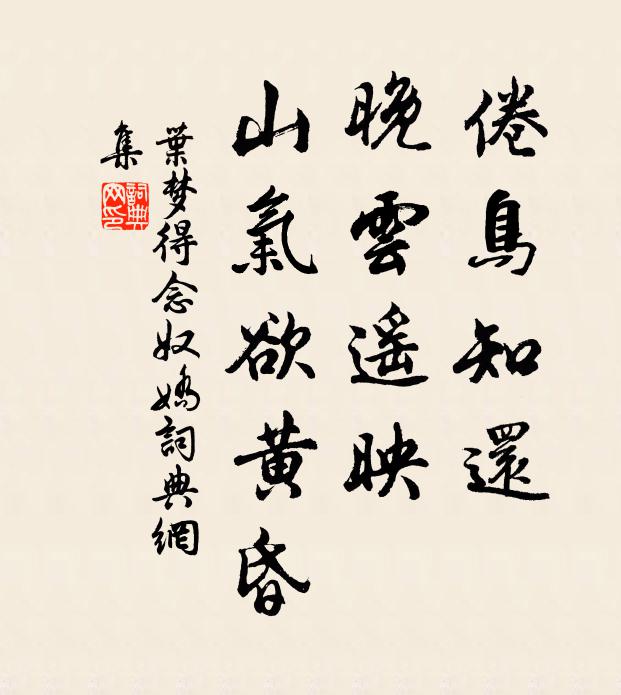 倦鳥知還
晚雲遙映
山氣欲黄昏
葉梦得念奴嬌詞典網
集
詞典
网印